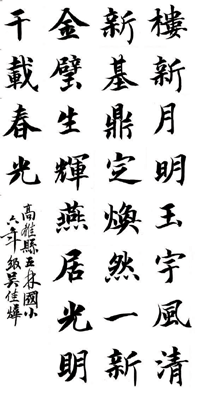 樓新月明玉宇風清
新基鼎定煥然一新
金璧生輝燕居光明
千載春光
高雄縣五林國小
六年級吳佳燁